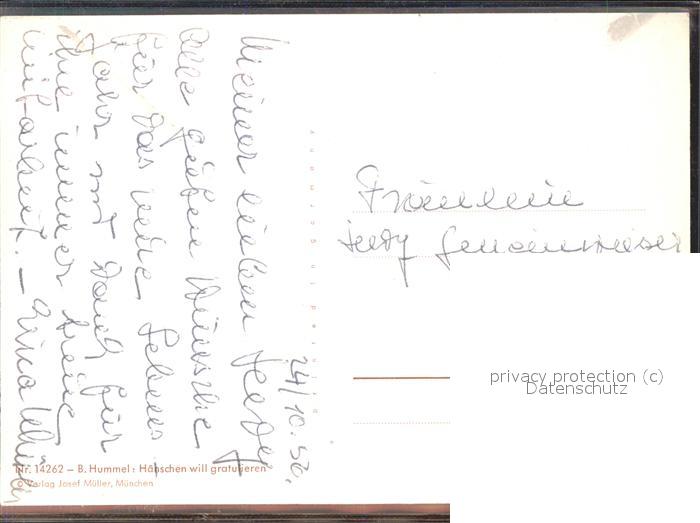 24/10.56.
Meiner lieben Hedy
alle guten Wünsche
für das neue Lebens
Jahr und Dank für
ihre immer treue
Mitarbeit. –
Fräulein
Hedy
privacy protection (c)
Datenschutz
Nr. 14262 – B. Hummel: Hänschen will gratulieren
© Verlag Josef Müller, München